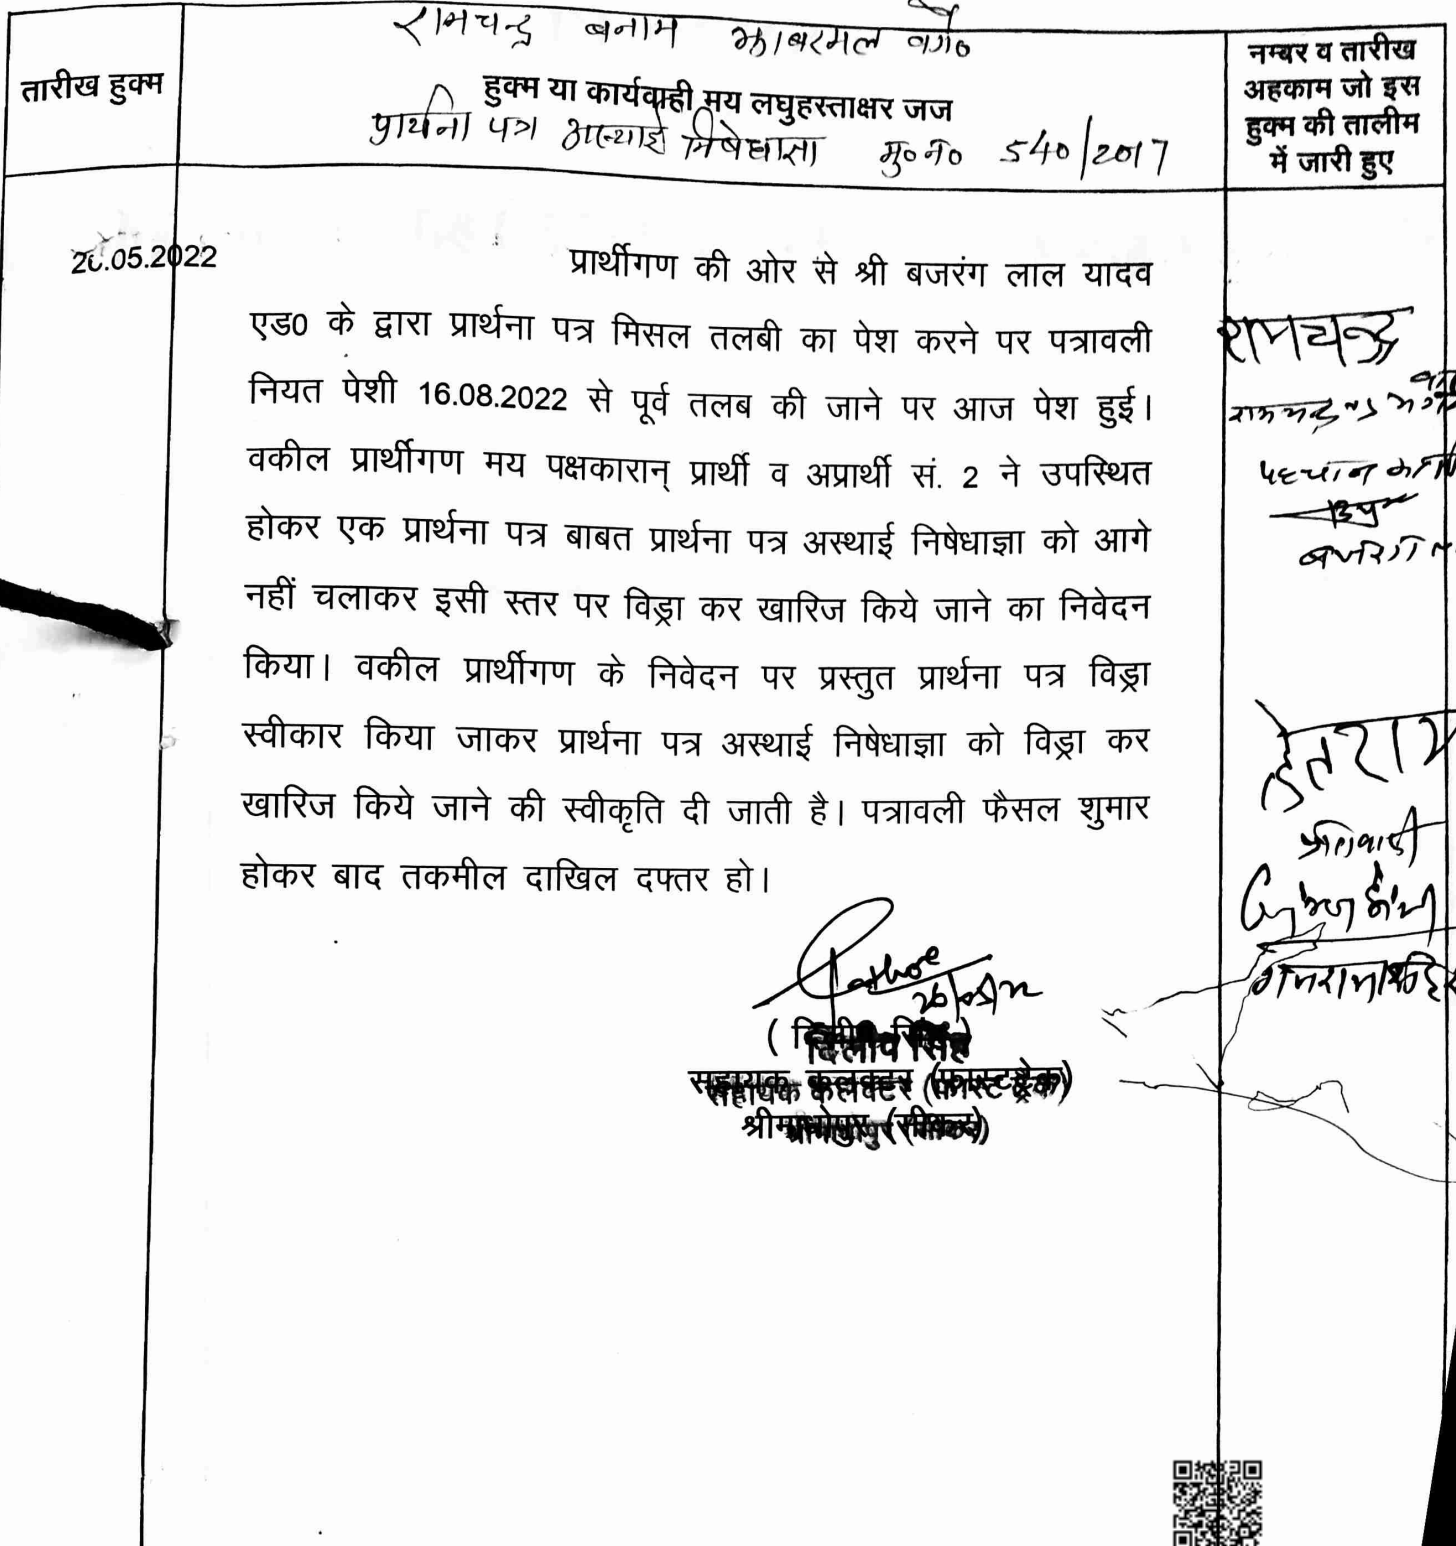 रामचन्द्र बनाम झाबरमल वगै०
तारीख हुक्म
हुक्म या कार्यवाही मय लघुहस्ताक्षर जज
प्रार्थना पत्र अस्थाई निषेधाज्ञा मु०न० 540/2017
नम्बर व तारीख
अहकाम जो इस
हुक्म की तालीम
में जारी हुए
.05.2022
प्रार्थीगण की ओर से श्री बजरंग लाल यादव
एड0 के द्वारा प्रार्थना पत्र मिसल तलबी का पेश करने पर पत्रावली
नियत पेशी 16.08.2022 से पूर्व तलब की जाने पर आज पेश हुई।
वकील प्रार्थीगण मय पक्षकारान् प्रार्थी व अप्रार्थी सं. 2 ने उपस्थित
होकर एक प्रार्थना पत्र बाबत प्रार्थना पत्र अस्थाई निषेधाज्ञा को आगे
नहीं चलाकर इसी स्तर पर विड्रा कर खारिज किये जाने का निवेदन
किया। वकील प्रार्थीगण के निवेदन पर प्रस्तुत प्रार्थना पत्र विड्रा
स्वीकार किया जाकर प्रार्थना पत्र अस्थाई निषेधाज्ञा को विड्रा कर
खारिज किये जाने की स्वीकृति दी जाती है। पत्रावली फैसल शुमार
होकर बाद तकमील दाखिल दफ्तर हो।
(दिलीप सिंह)
सहायक कलक्टर (फास्ट ट्रेक)
श्रीमाधोपुर (सीकर)
रामचन्द्र
पहचान
हेतराम